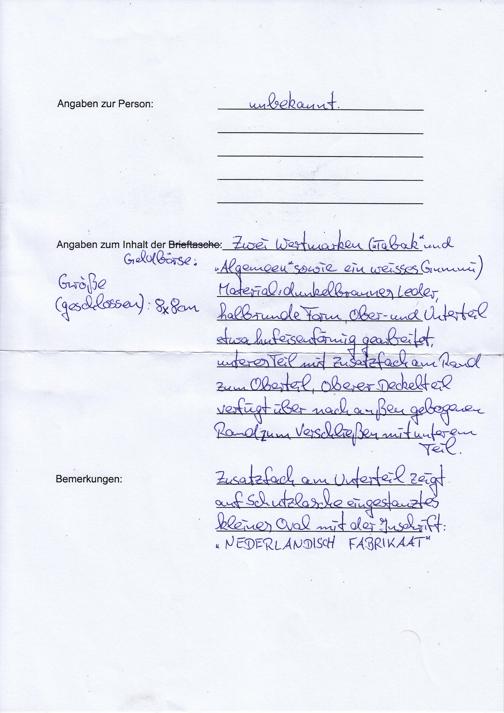 Angaben zur Person: unbekannt.
Angaben zum Inhalt der Brieftasche: Zwei Wertmarken ("Tabak" und
Geldbörse:
"Algemeen" sowie ein weisses Gummi)
Größe
(geschlossen): 8x8cm
Material: dunkelbraunes Leder,
halbrunde Form, Ober- und Unterteil
etwa hufeisenförmig gearbeitet,
unteres Teil mit Zusatzfach am Rand
zum Oberteil, oberer Deckelteil
verfügt über nach außen gebogenen
Rand zum Verschließen mit unterem
Teil.
Bemerkungen: Zusatzfach am Unterteil zeigt
auf Schutzlasche eingestanztes
kleines Oval mit der Inschrift:
"NEDERLANDISCH FABRIKAAT"